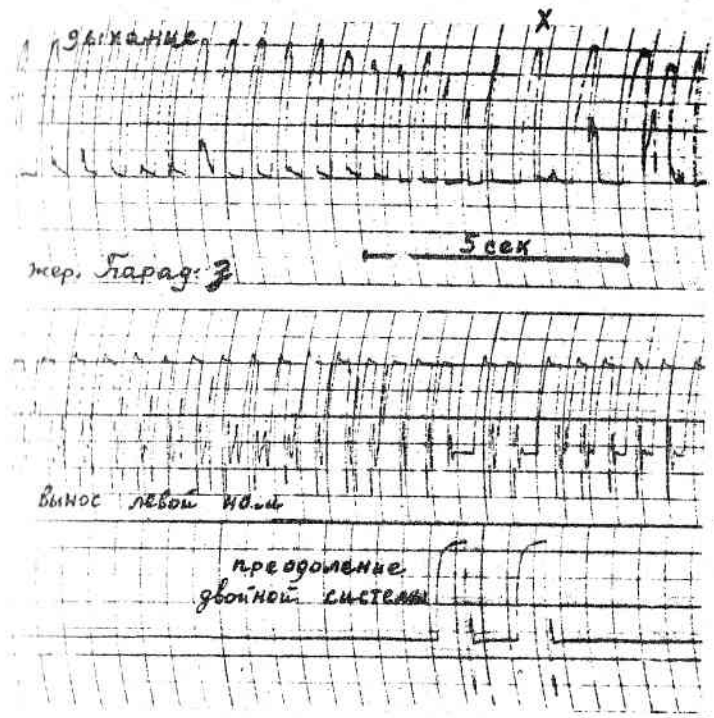 дыхание
X
5 сек
жер. Парад: 3
вынос левой
преодоление
двойной системы